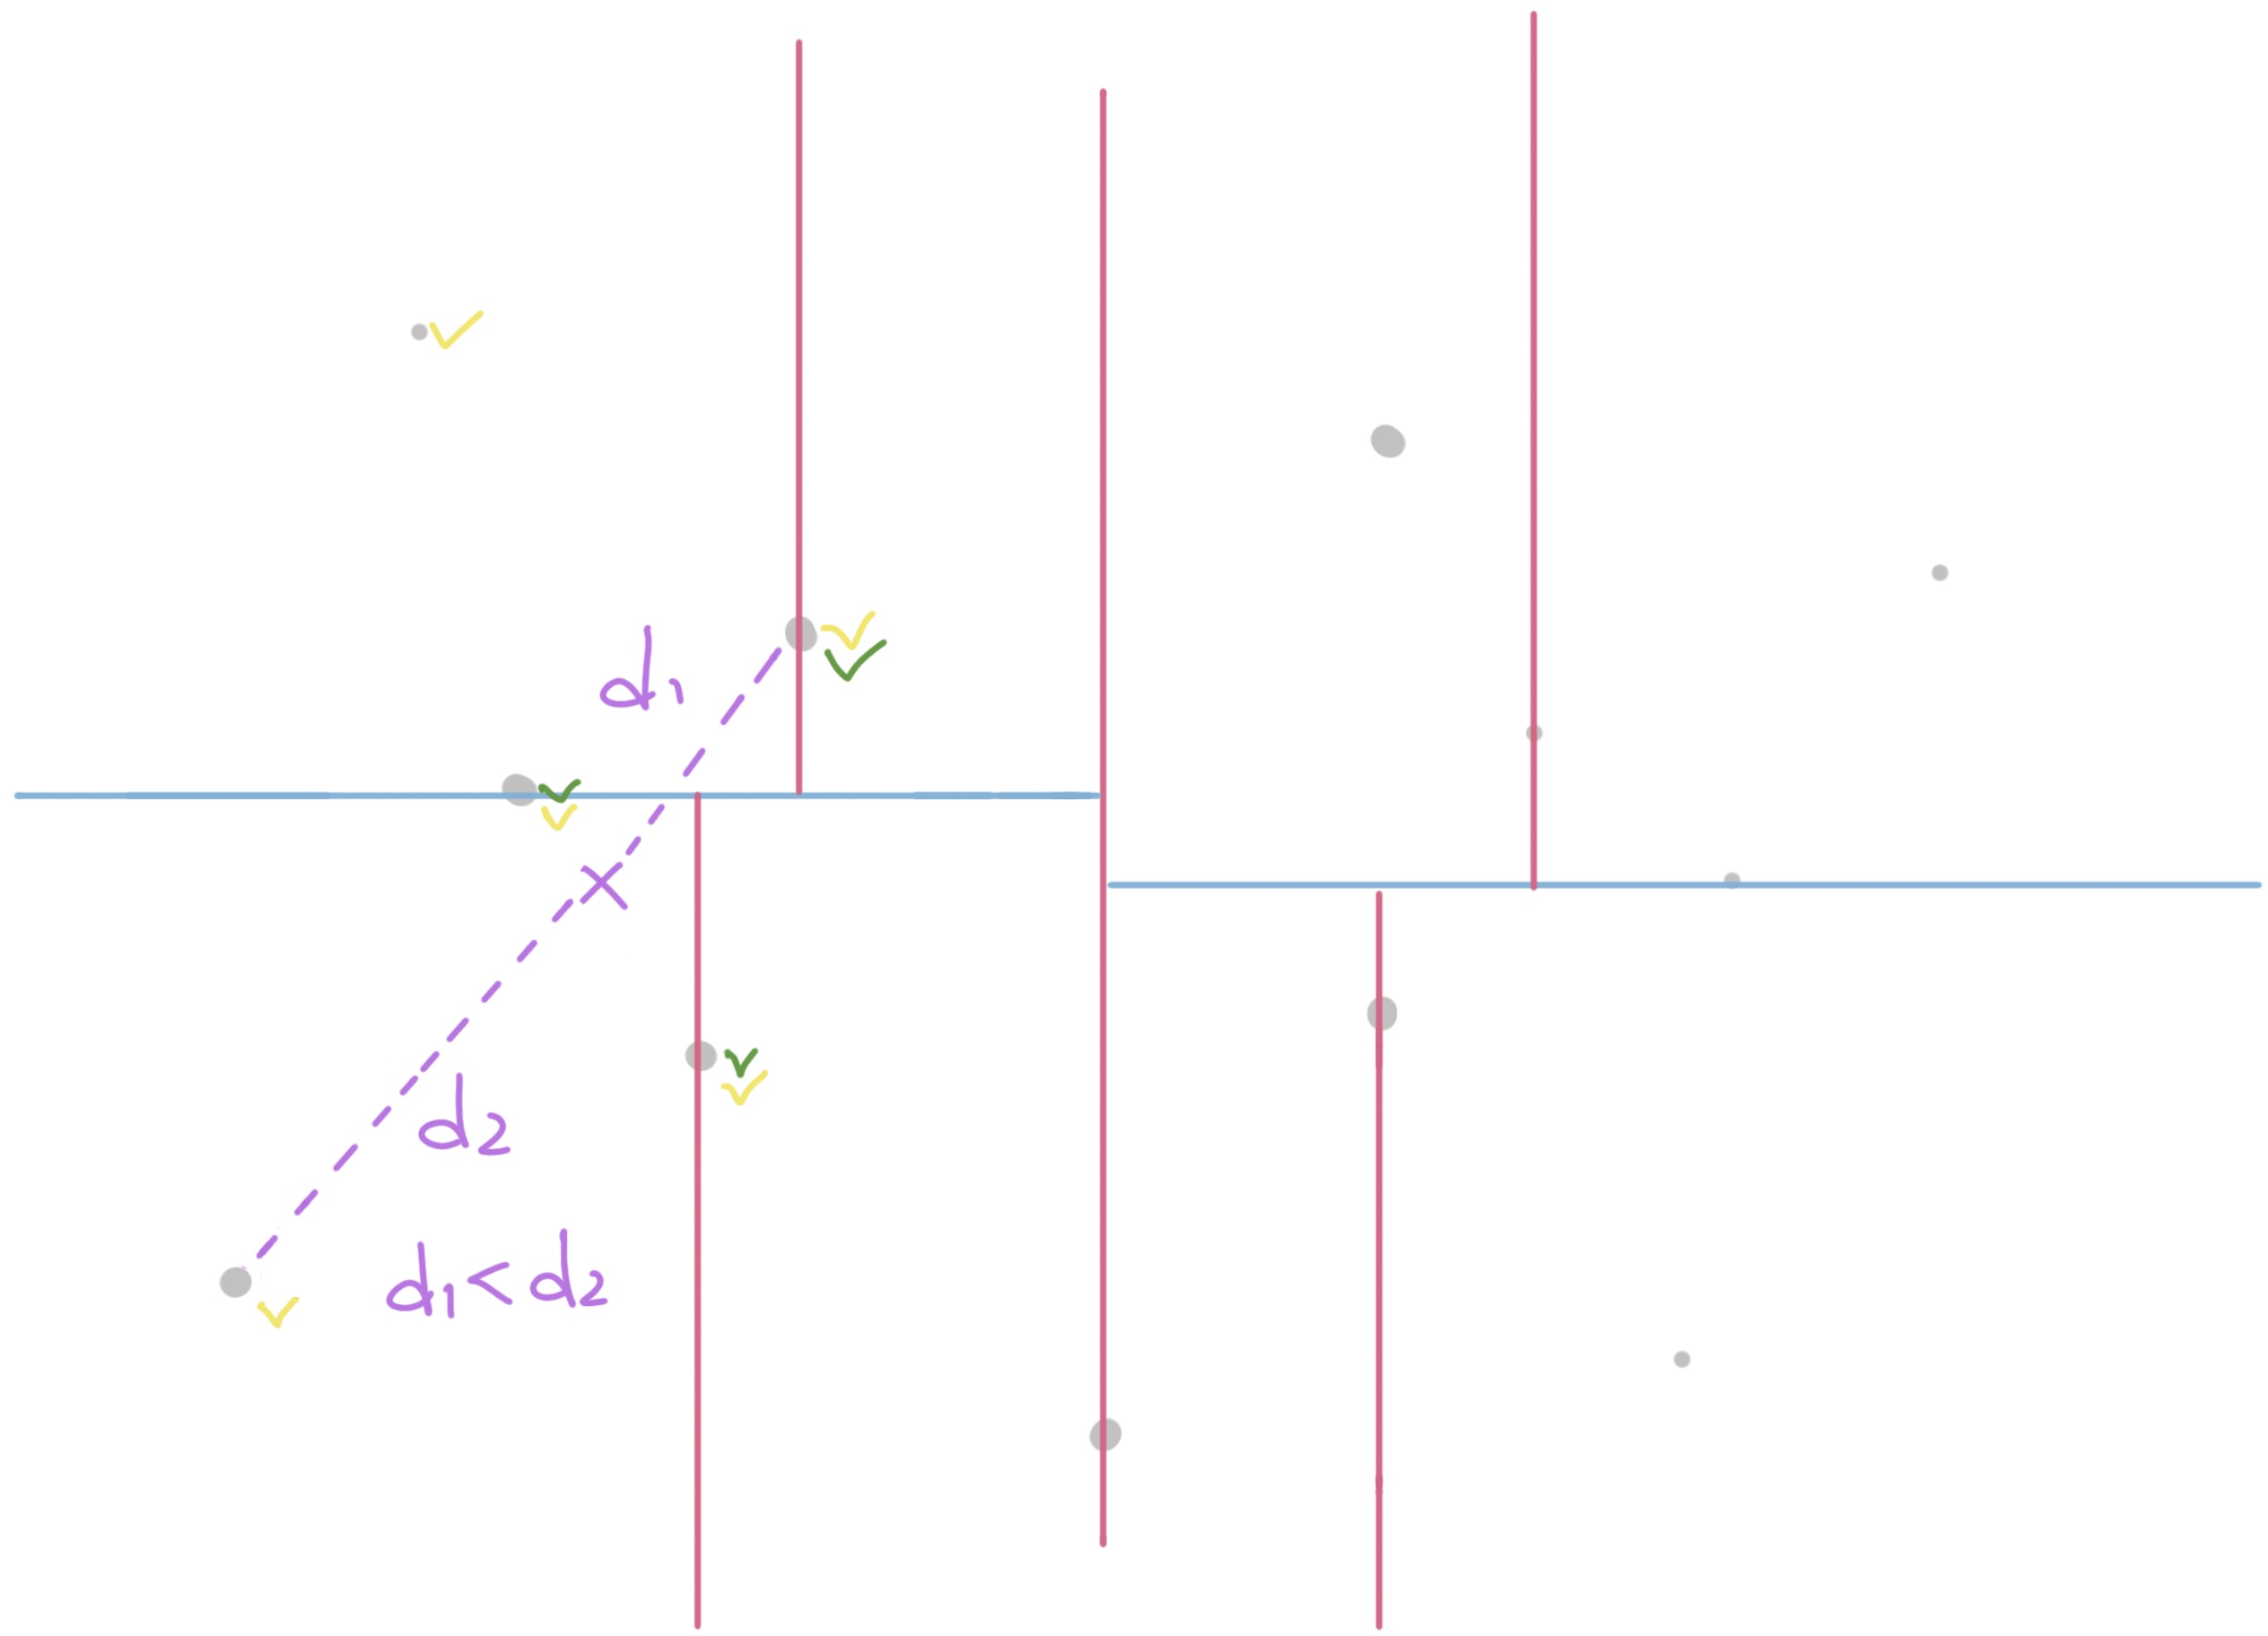 d₁
d₂
d₁<d₂